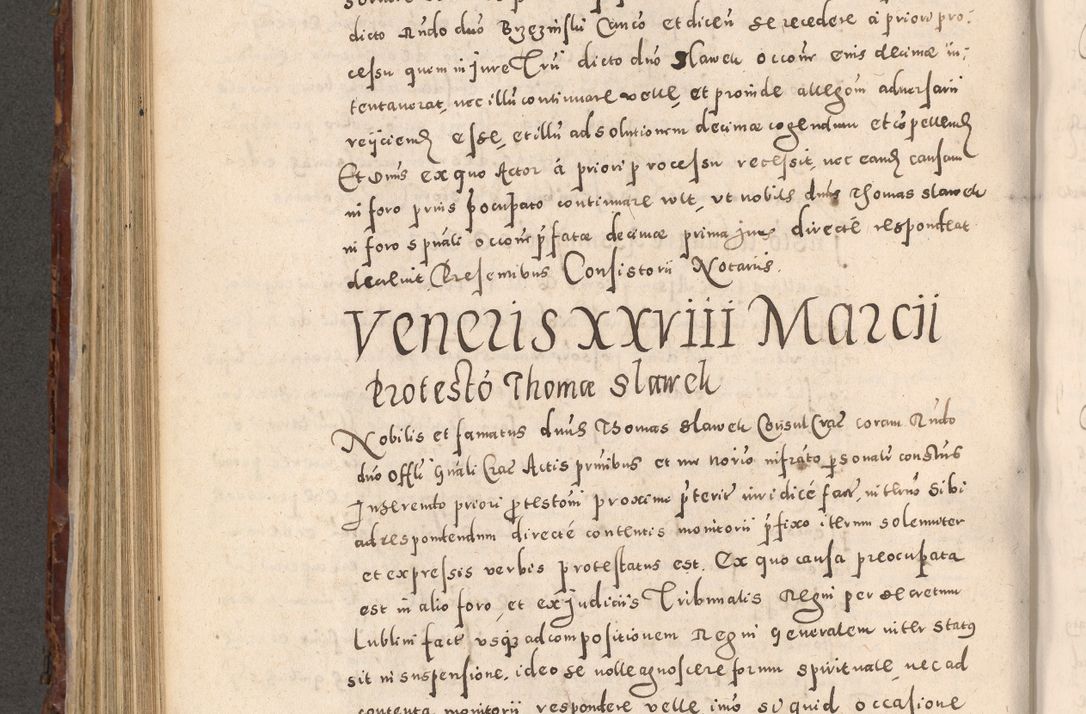 dicto Rndo duo Brzezinski Canco et dicen se recedere á priori pro:
cessu quem in jure Trii dicto dno Slawek occone enis decimæ in:
tentauerat, nec illū continuare velle, et proinde allegoni adversarii
reijciend esse, et illū ad solutionem decimæ cogendum et cōpellend
Et Dnūs ex quo Actor á priori processu recessit, nec eand causam
in foro prius pocupato continuare vult, vt nobilis dnus Thomas Slawek
in foro spuali occone pfatæ decimæ prima jur directé respondeat
decreuit, Presentibus Consistorii Notariis.
Veneris XXVIII Marcii
Protestō Thomæ Slawek
Nobilis et famatus dnūs Thomas Slawek Consul Crac coram Rndo
dno Offli Gnāli Crac Actis prnībus et me norio infrato psonalr constūs
Inserendo priori protestoni proxime pterit iuridicé fact, interno sibi
ad respondendum directé contentis monitorii pfixo iterum solemniter
et expressis verbis protestatus est. Ex quo causa preocupata
est in alio foro, et ex judiciis Tribunalis Regni per decretum
Lublini fact vsq ad compositionem Regni generalem inter status
sit in suspensione, ideo se nolle agnoscere forum spirituale nec ad
contenta monitorii respondere velle imo si quid occasione